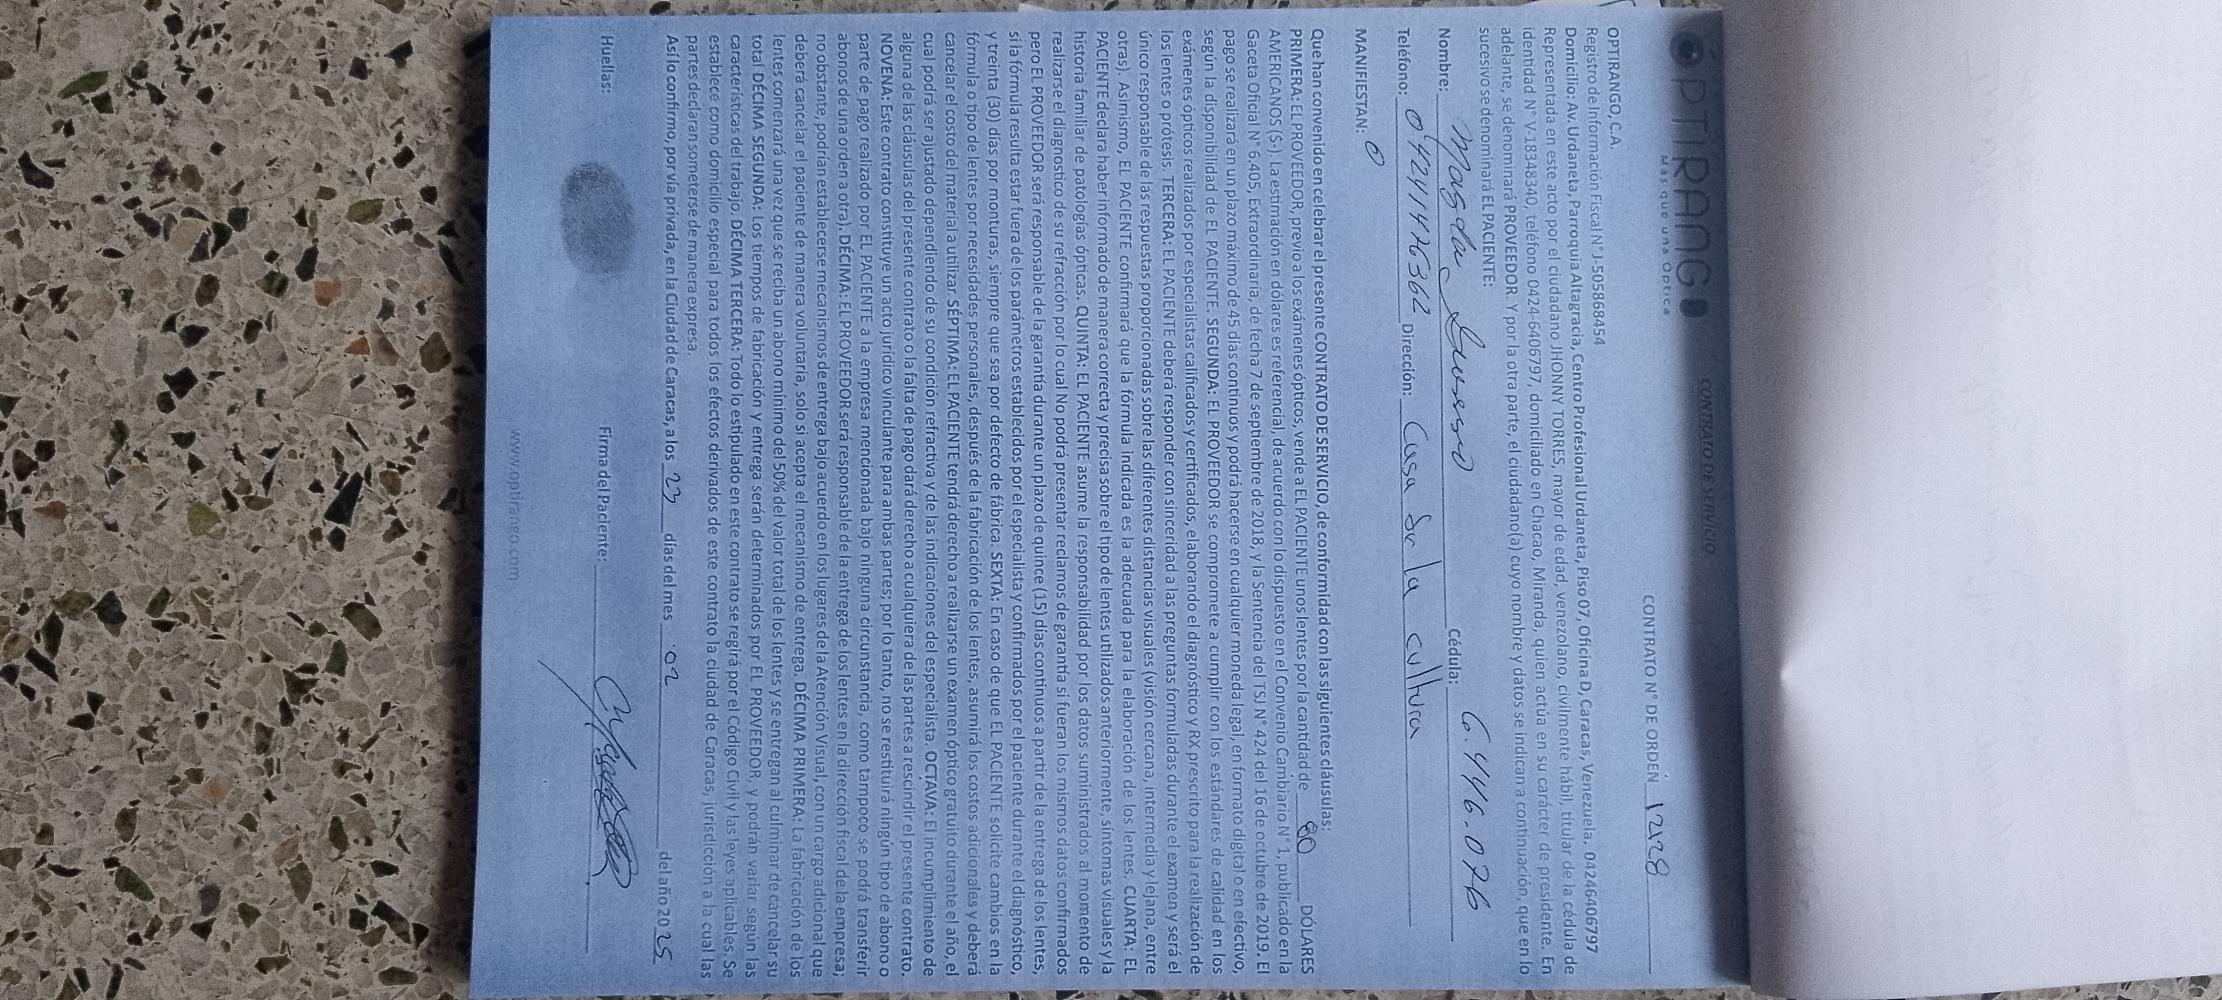 OPTIRANGO
Más que una Óptica
CONTRATO DE SERVICIO
CONTRATO N° DE ORDEN 12128
OPTIRANGO, C.A.
Registro de Información Fiscal N° J-505868454
Domicilio: Av. Urdaneta, Parroquia Altagracia, Centro Profesional Urdaneta, Piso 07, Oficina D, Caracas, Venezuela. 04246406797
Representada en este acto por el ciudadano JHONNY TORRES, mayor de edad, venezolano, civilmente hábil, titular de la cédula de
identidad N° V-18348340, teléfono 0424-6406797, domiciliado en Chacao, Miranda, quien actúa en su carácter de presidente. En
adelante, se denominará PROVEEDOR. Y por la otra parte, el ciudadano(a) cuyo nombre y datos se indican a continuación, que en lo
sucesivo se denominará EL PACIENTE:
Nombre: Magda Cédula: 6.446.076
Teléfono: 04241476362 Dirección: Casa de la cultura
MANIFIESTAN:
Que han convenido en celebrar el presente CONTRATO DE SERVICIO, de conformidad con las siguientes cláusulas:
PRIMERA: EL PROVEEDOR, previo a los exámenes ópticos, vende a EL PACIENTE unos lentes por la cantidad de 80 DÓLARES
AMERICANOS ($). La estimación en dólares es referencial, de acuerdo con lo dispuesto en el Convenio Cambiario N° 1, publicado en la
Gaceta Oficial N° 6.405, Extraordinaria, de fecha 7 de septiembre de 2018, y la Sentencia del TSJ N° 424 del 16 de octubre de 2019. El
pago se realizará en un plazo máximo de 45 días continuos y podrá hacerse en cualquier moneda legal, en formato digital o en efectivo,
según la disponibilidad de EL PACIENTE. SEGUNDA: EL PROVEEDOR se compromete a cumplir con los estándares de calidad en los
exámenes ópticos realizados por especialistas calificados y certificados, elaborando el diagnóstico y RX prescrito para la realización de
los lentes o prótesis. TERCERA: EL PACIENTE deberá responder con sinceridad a las preguntas formuladas durante el examen y será el
único responsable de las respuestas proporcionadas sobre las diferentes distancias visuales (visión cercana, intermedia y lejana, entre
otras). Asimismo, EL PACIENTE confirmará que la fórmula indicada es la adecuada para la elaboración de los lentes. CUARTA: EL
PACIENTE declara haber informado de manera correcta y precisa sobre el tipo de lentes utilizados anteriormente, síntomas visuales y la
historia familiar de patologías ópticas. QUINTA: EL PACIENTE asume la responsabilidad por los datos suministrados al momento de
realizarse el diagnostico de su refracción por lo cual No podrá presentar reclamos de garantía si fueran los mismos datos confirmados
pero EL PROVEEDOR será responsable de la garantía durante un plazo de quince (15) días continuos a partir de la entrega de los lentes,
si la fórmula resulta estar fuera de los parámetros establecidos por el especialista y confirmados por el paciente durante el diagnóstico,
y treinta (30) días por monturas, siempre que sea por defecto de fábrica. SEXTA: En caso de que EL PACIENTE solicite cambios en la
fórmula o tipo de lentes por necesidades personales, después de la fabricación de los lentes, asumirá los costos adicionales y deberá
cancelar el costo del material a utilizar. SÉPTIMA: EL PACIENTE tendrá derecho a realizarse un examen óptico gratuito durante el año, el
cual podrá ser ajustado dependiendo de su condición refractiva y de las indicaciones del especialista. OCTAVA: El incumplimiento de
alguna de las cláusulas del presente contrato o la falta de pago dará derecho a cualquiera de las partes a rescindir el presente contrato.
NOVENA: Este contrato constituye un acto jurídico vinculante para ambas partes; por lo tanto, no se restituirá ningún tipo de abono o
parte de pago realizado por EL PACIENTE a la empresa mencionada bajo ninguna circunstancia, como tampoco se podrá transferir
abonos de una orden a otra). DÉCIMA: EL PROVEEDOR será responsable de la entrega de los lentes en la dirección fiscal de la empresa;
no obstante, podrían establecerse mecanismos de entrega bajo acuerdo en los lugares de la Atención Visual, con un cargo adicional que
deberá cancelar el paciente de manera voluntaria, solo si acepta el mecanismo de entrega. DÉCIMA PRIMERA: La fabricación de los
lentes comenzará una vez que se reciba un abono mínimo del 50% del valor total de los lentes y se entregan al culminar de cancelar su
total DÉCIMA SEGUNDA: Los tiempos de fabricación y entrega serán determinados por EL PROVEEDOR, y podrán variar según las
características del trabajo. DÉCIMA TERCERA: Todo lo estipulado en este contrato se regirá por el Código Civil y las leyes aplicables. Se
establece como domicilio especial para todos los efectos derivados de este contrato la ciudad de Caracas, jurisdicción a la cual las
partes declaran someterse de manera expresa.
Así lo confirmo, por vía privada, en la Ciudad de Caracas, a los 23 días del mes 02 del año 2025
Huellas: Firma del Paciente:
www.optirango.com